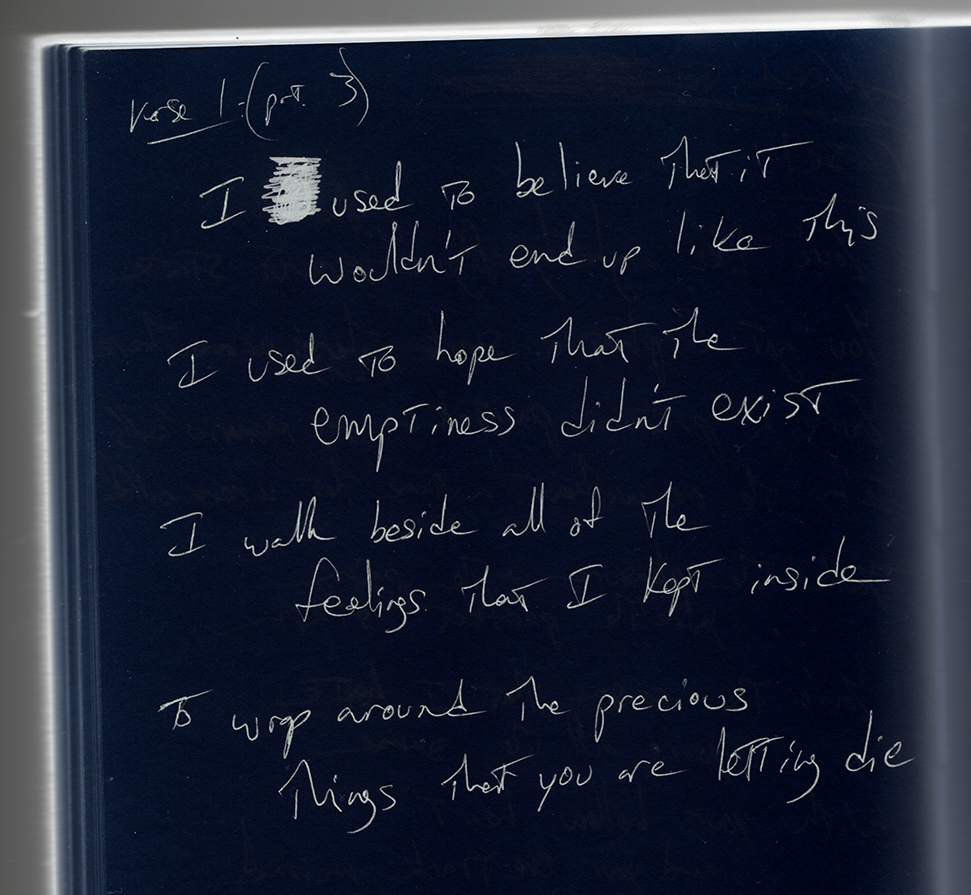 Verse 1 (part 3)
I used to believe that it
wouldn't end up like this
I used to hope that the
emptiness didn't exist
I walk beside all of the
feelings that I kept inside
To wrap around the precious
things that you are letting die